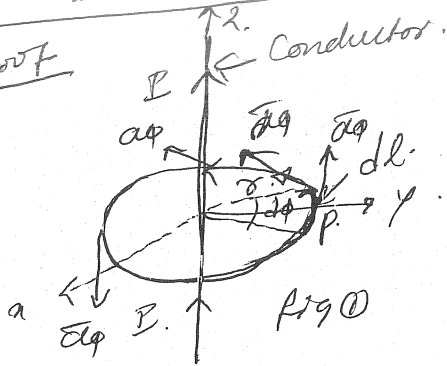 oof
z.
Conductor.
I
aφ
āφ
āφ
dl.
r.
dφ
P.
y
x
āφ
I.
fig ①